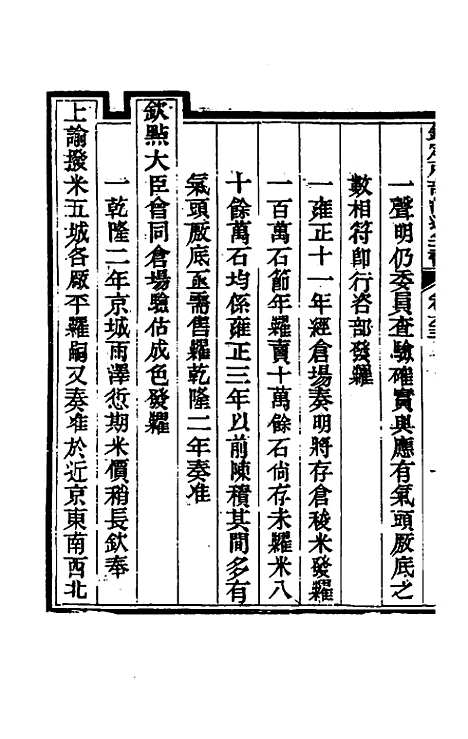 一聲明仍委員查驗確實與應有氣頭厫底之
數相符卽行咨部發糶
一雍正十一年經倉場奏明將存倉稜米發糶
一百萬石節年糶賣十萬餘石尙存未糶米八
十餘萬石均係雍正三年以前陳積其間多有
氣頭厫底亟需售糶乾隆二年奏准
欽點大臣會同倉場驗估成色發糶
一乾隆二年京城雨澤愆期米價稍長欽奉
上諭撥米五城各厫平糶嗣又奏准於近京東南西北